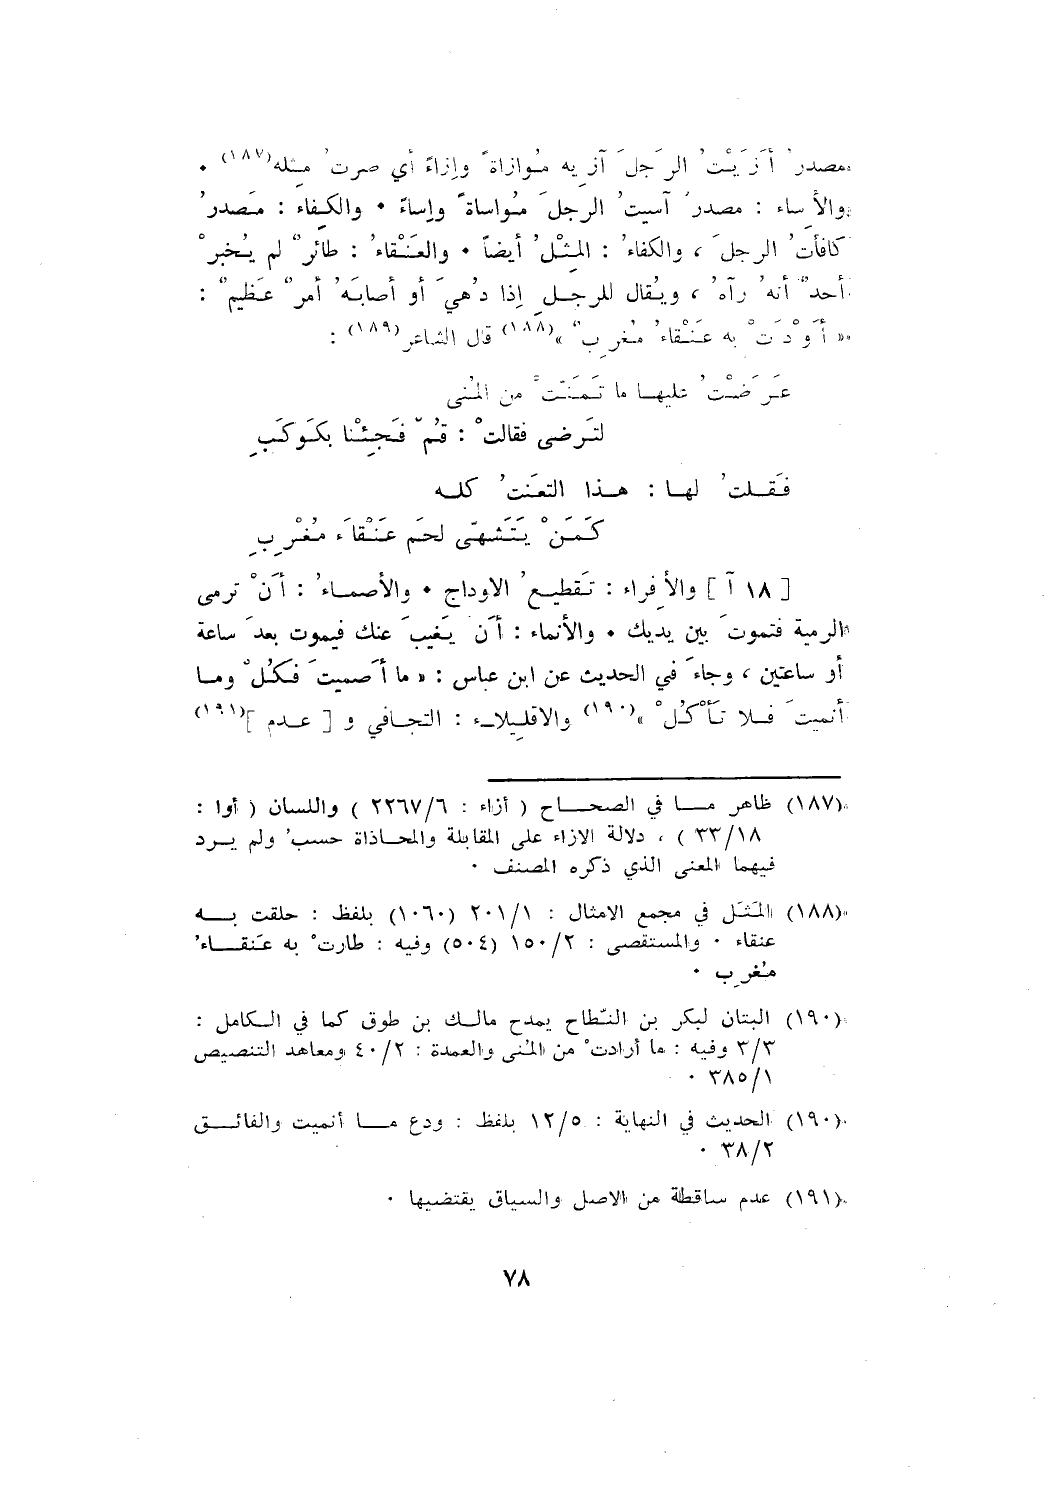 مصدرُ أَزَيْتُ الرَجلَ آزِيه مُوازاةً وإزاءً أي صرتُ مِثله(١٨٧) ٠
والأِساء : مصدرُ آسيتُ الرجلَ مُواساةً وإساءً ٠ والكِفاء : مَصدرُ
كافأتُ الرجلَ ، والكفاءُ : المِثْلُ أيضاً ٠ والعَنْقاءُ : طائرٌ لم يُخبرْ
أحدٌ أنهُ رآهُ ، ويُقال للرجلِ إذا دُهيَ أو أصابَهُ أمرٌ عَظيمٌ :
« أَوْدَتْ به عَنْقاءُ مُغرِبٌ »(١٨٨) قال الشاعر(١٨٩) :
عَرَضْتُ عليها ما تَمَنّتْ من المُنى
لتَرضى فقالتْ : قُمّ فَجِئْنا بكَوكَبِ
فَقلتُ لها : هذا التعَنتُ كله
كَمَنْ يَتَشهّى لحَم عَنْقاَء مُغْرِبِ
[ ١٨ آ ] والأِفراء : تَقطيعُ الاوداج ٠ والأصماءُ : أَنْ ترمى
الرمية فتموتَ بين يديك ٠ والأنماء : أَن يَغيبَ عنك فيموت بعدَ ساعة
أو ساعتين ، وجاءَ في الحديث عن ابن عباس : « ما أَصميتَ فكُلْ وما
أنميتَ فلا تَأْكُلْ »(١٩٠) والاقلِيلاء : التجافي و [ عدم ](١٩١)
(١٨٧) ظاهر ما في الصحاح ( أزاء : ٢٢٦٧/٦ ) واللسان ( أوا :
٣٣/١٨ ) ، دلالة الازاء على المقابلة والمحاذاة حسبُ ولم يرد
فيهما المعنى الذي ذكره المصنف ٠
(١٨٨) المَثَل في مجمع الامثال : ٢٠١/١ (١٠٦٠) بلفظ : حلقت به
عنقاء ٠ والمستقصى : ١٥٠/٢ (٥٠٤) وفيه : طارتْ به عَنقاءُ
مُغرِب ٠
(١٩٠) البتان لبكر بن النطّاح يمدح مالك بن طوق كما في الكامل :
٣/٣ وفيه : ما أرادتْ من المُنى والعمدة : ٤٠/٢ ومعاهد التنصيص
٣٨٥/١ ٠
(١٩٠) الحديث في النهاية : ١٢/٥ بلفظ : ودع ما أنميت والفائق
٣٨/٢ ٠
(١٩١) عدم ساقطة من الاصل والسياق يقتضيها ٠
٧٨